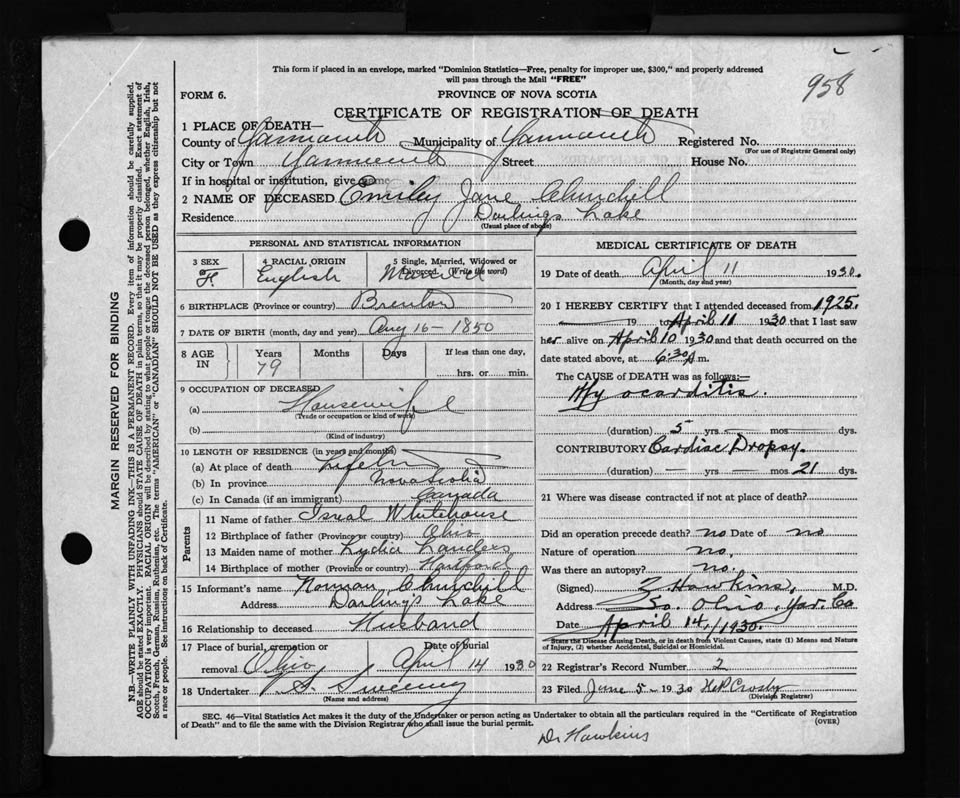 958
This form if placed in an envelope, marked "Dominion Statistics—Free, penalty for improper use, $300," and properly addressed
will pass through the Mail "FREE"
FORM 6.
PROVINCE OF NOVA SCOTIA
CERTIFICATE OF REGISTRATION OF DEATH
1 PLACE OF DEATH—
County of Yarmouth Municipality of Yarmouth Registered No.
(For use of Registrar General only)
City or Town Yarmouth Street House No.
If in hospital or institution, give name
2 NAME OF DECEASED Emily Jane Churchill
Residence Darlings Lake
(Usual place of abode)
PERSONAL AND STATISTICAL INFORMATION
3 SEX 4 RACIAL ORIGIN 5 Single, Married, Widowed or
Divorced (Write the word)
F. English Married
6 BIRTHPLACE (Province or country) Brenton
7 DATE OF BIRTH (month, day and year) Aug 16 - 1850
8 AGE IN Years Months Days If less than one day,
79 hrs. or min.
9 OCCUPATION OF DECEASED
(a) Housewife
(Trade or occupation or kind of work)
(b)
(Kind of industry)
10 LENGTH OF RESIDENCE (in years and months)
(a) At place of death
(b) In province Nova Scotia
(c) In Canada (if an immigrant) Canada
Parents
11 Name of father Isreal Whitehouse
12 Birthplace of father (Province or country) Ohio
13 Maiden name of mother Lydia Landers
14 Birthplace of mother (Province or country) Hartford
15 Informant's name Norman Churchill
Address Darling's Lake
16 Relationship to deceased Husband
17 Place of burial, cremation or Date of Burial
removal Ohio April 14 1930
18 Undertaker V S Sweeney
(Name and address)
MEDICAL CERTIFICATE OF DEATH
19 Date of death April 11 1930.
(Month, day and year)
20 I HEREBY CERTIFY that I attended deceased from 1925.
19 to April 11 1930 that I last saw
her alive on April 10 1930 and that death occurred on the
date stated above, at 6:30 m.
The CAUSE OF DEATH was as follows:—
Myocarditis.
(duration) 5 yrs — mos dys.
CONTRIBUTORY Cardiac Dropsy.
(duration) — yrs — mos 21 dys.
21 Where was disease contracted if not at place of death?
Did an operation precede death? no Date of no
Nature of operation no.
Was there an autopsy? no.
(Signed) Z Hawkins, M.D.
Address So. Ohio, Yar. Co
Date April 14, 1930.
State the Disease causing Death, or in death from Violent Causes, state (1) Means and Nature
of Injury, (2) whether Accidental, Suicidal or Homicidal.
22 Registrar's Record Number 2
23 Filed June 5 - 1930 H P Crosby
(Division Registrar)
SEC. 46—Vital Statistics Act makes it the duty of the Undertaker or person acting as Undertaker to obtain all the particulars required in the "Certificate of Registration
of Death" and to file the same with the Division Registrar who shall issue the burial permit.
(OVER)
Dr Hawkins
MARGIN RESERVED FOR BINDING
N.B.—WRITE PLAINLY WITH UNFADING INK—THIS IS A PERMANENT RECORD. Every item of information should be carefully supplied.
AGE should be stated EXACTLY. PHYSICIANS should STATE CAUSE OF DEATH in plain terms, so that it may be properly classified. Exact statement of
OCCUPATION is very important. RACIAL ORIGIN will be described by stating to what people or tongue the deceased person belonged, whether English, Irish,
Scotch, French, German, Russian, Ruthenian, etc. The terms "AMERICAN" or "CANADIAN" SHOULD NOT BE USED as they express citizenship but not
a race or people. See instructions on back of Certificate.